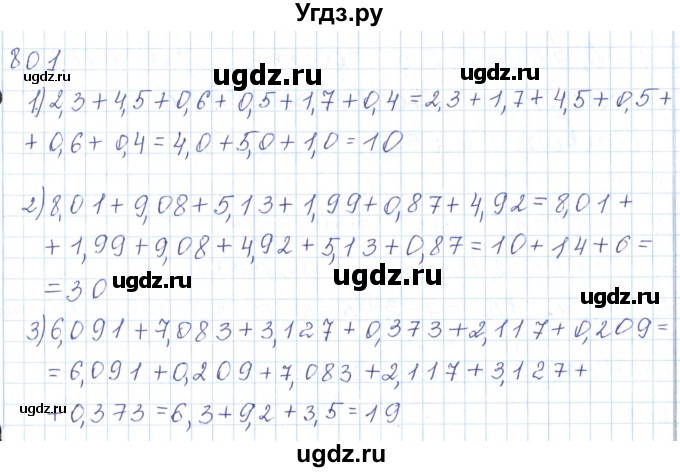 Угдз.ру
801
ugdz.ru
ugdz.ru
ugdz.ru
1) 2,3+4,5+0,6+0,5+1,7+0,4=2,3+1,7+4,5+0,5+
+0,6+0,4=4,0+5,0+1,0=10
ugdz.ru
2) 8,01+9,08+5,13+1,99+0,87+4,92=8,01+
+1,99+9,08+4,92+5,13+0,87=10+14+6=
ugdz.ru
ugdz.ru
=30
ugdz.ru
3) 6,091+7,083+3,127+0,373+2,117+0,209=
=6,091+0,209+7,083+2,117+3,127+
ugdz.ru
+0,373=6,3+9,2+3,5=19
ugdz.ru
ugdz.ru